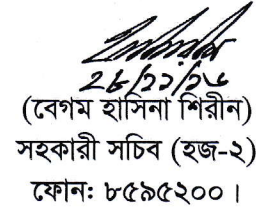 ২৮/১১/১৬
(বেগম হাসিনা শিরীন)
সহকারী সচিব (হজ-২)
ফোন: ৮৫৯৫২০০।